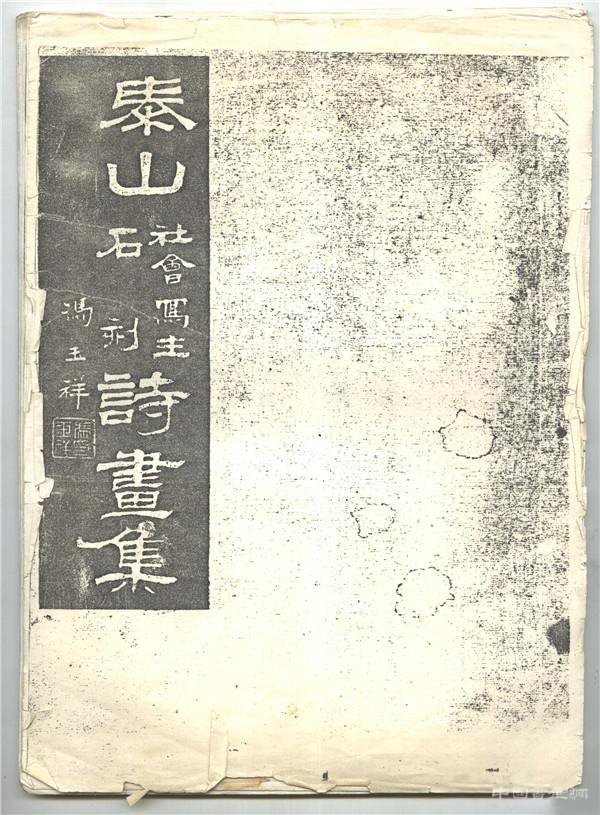 泰山
社會寫生
石刻
詩畫集
馮玉祥